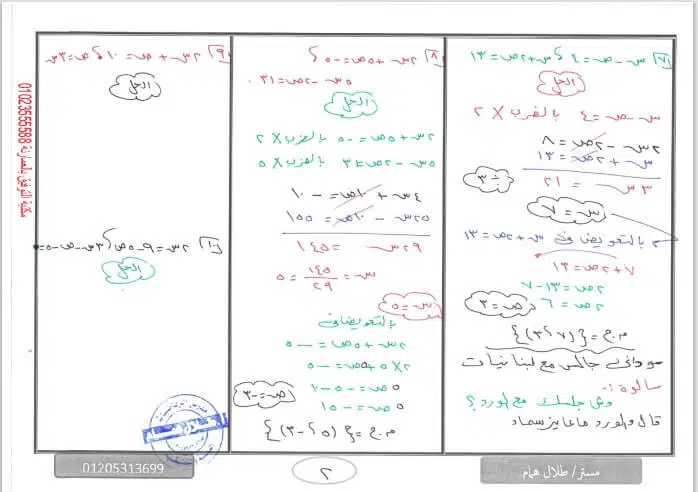 ٧ س - ص = ٤ ، س + ٢ص = ١٣
الحل
س - ص = ٤ بالضرب × ٢
٢س - ٢ص = ٨
س + ٢ص = ١٣
٣س = ٢١
÷ ٣
س = ٧
بالتعويض في س + ٢ص = ١٣
٧ + ٢ص = ١٣
٢ص = ١٣ - ٧
٢ص = ٦
ص = ٣
م.ح = {(٧ ، ٣)}
سوداني جالس مع لبنانيات
سالوة :-
وش جلسك مع الورد؟
قال الورد ماعايز سماد
٨ ٢س + ٥ص = -٥ ،
٥س - ٢ص = ٣١
الحل
٢س + ٥ص = -٥ بالضرب × ٢
٥س - ٢ص = ٣١ بالضرب × ٥
٤س + ١٠ص = -١٠
٢٥س - ١٠ص = ١٥٥
٢٩س = ١٤٥
س = ١٤٥/٢٩ = ٥
س = ٥
بالتعويض في
٢س + ٥ص = -٥
٢×٥ + ٥ص = -٥
٥ص = -٥ - ١٠
٥ص = -١٥
ص = -٣
م.ح = {(٥ ، -٣)}
٩ ٢س + ص = ١٠ ، ص = ٣س
الحل
١٠ ٢س = ٩ - ٥ص ، ٣س - ص - ٥ = ٠
الحل
مكتبة التوفيق بالعمرانية 01023555588
01205313699
٢
مستر/ طلال همام